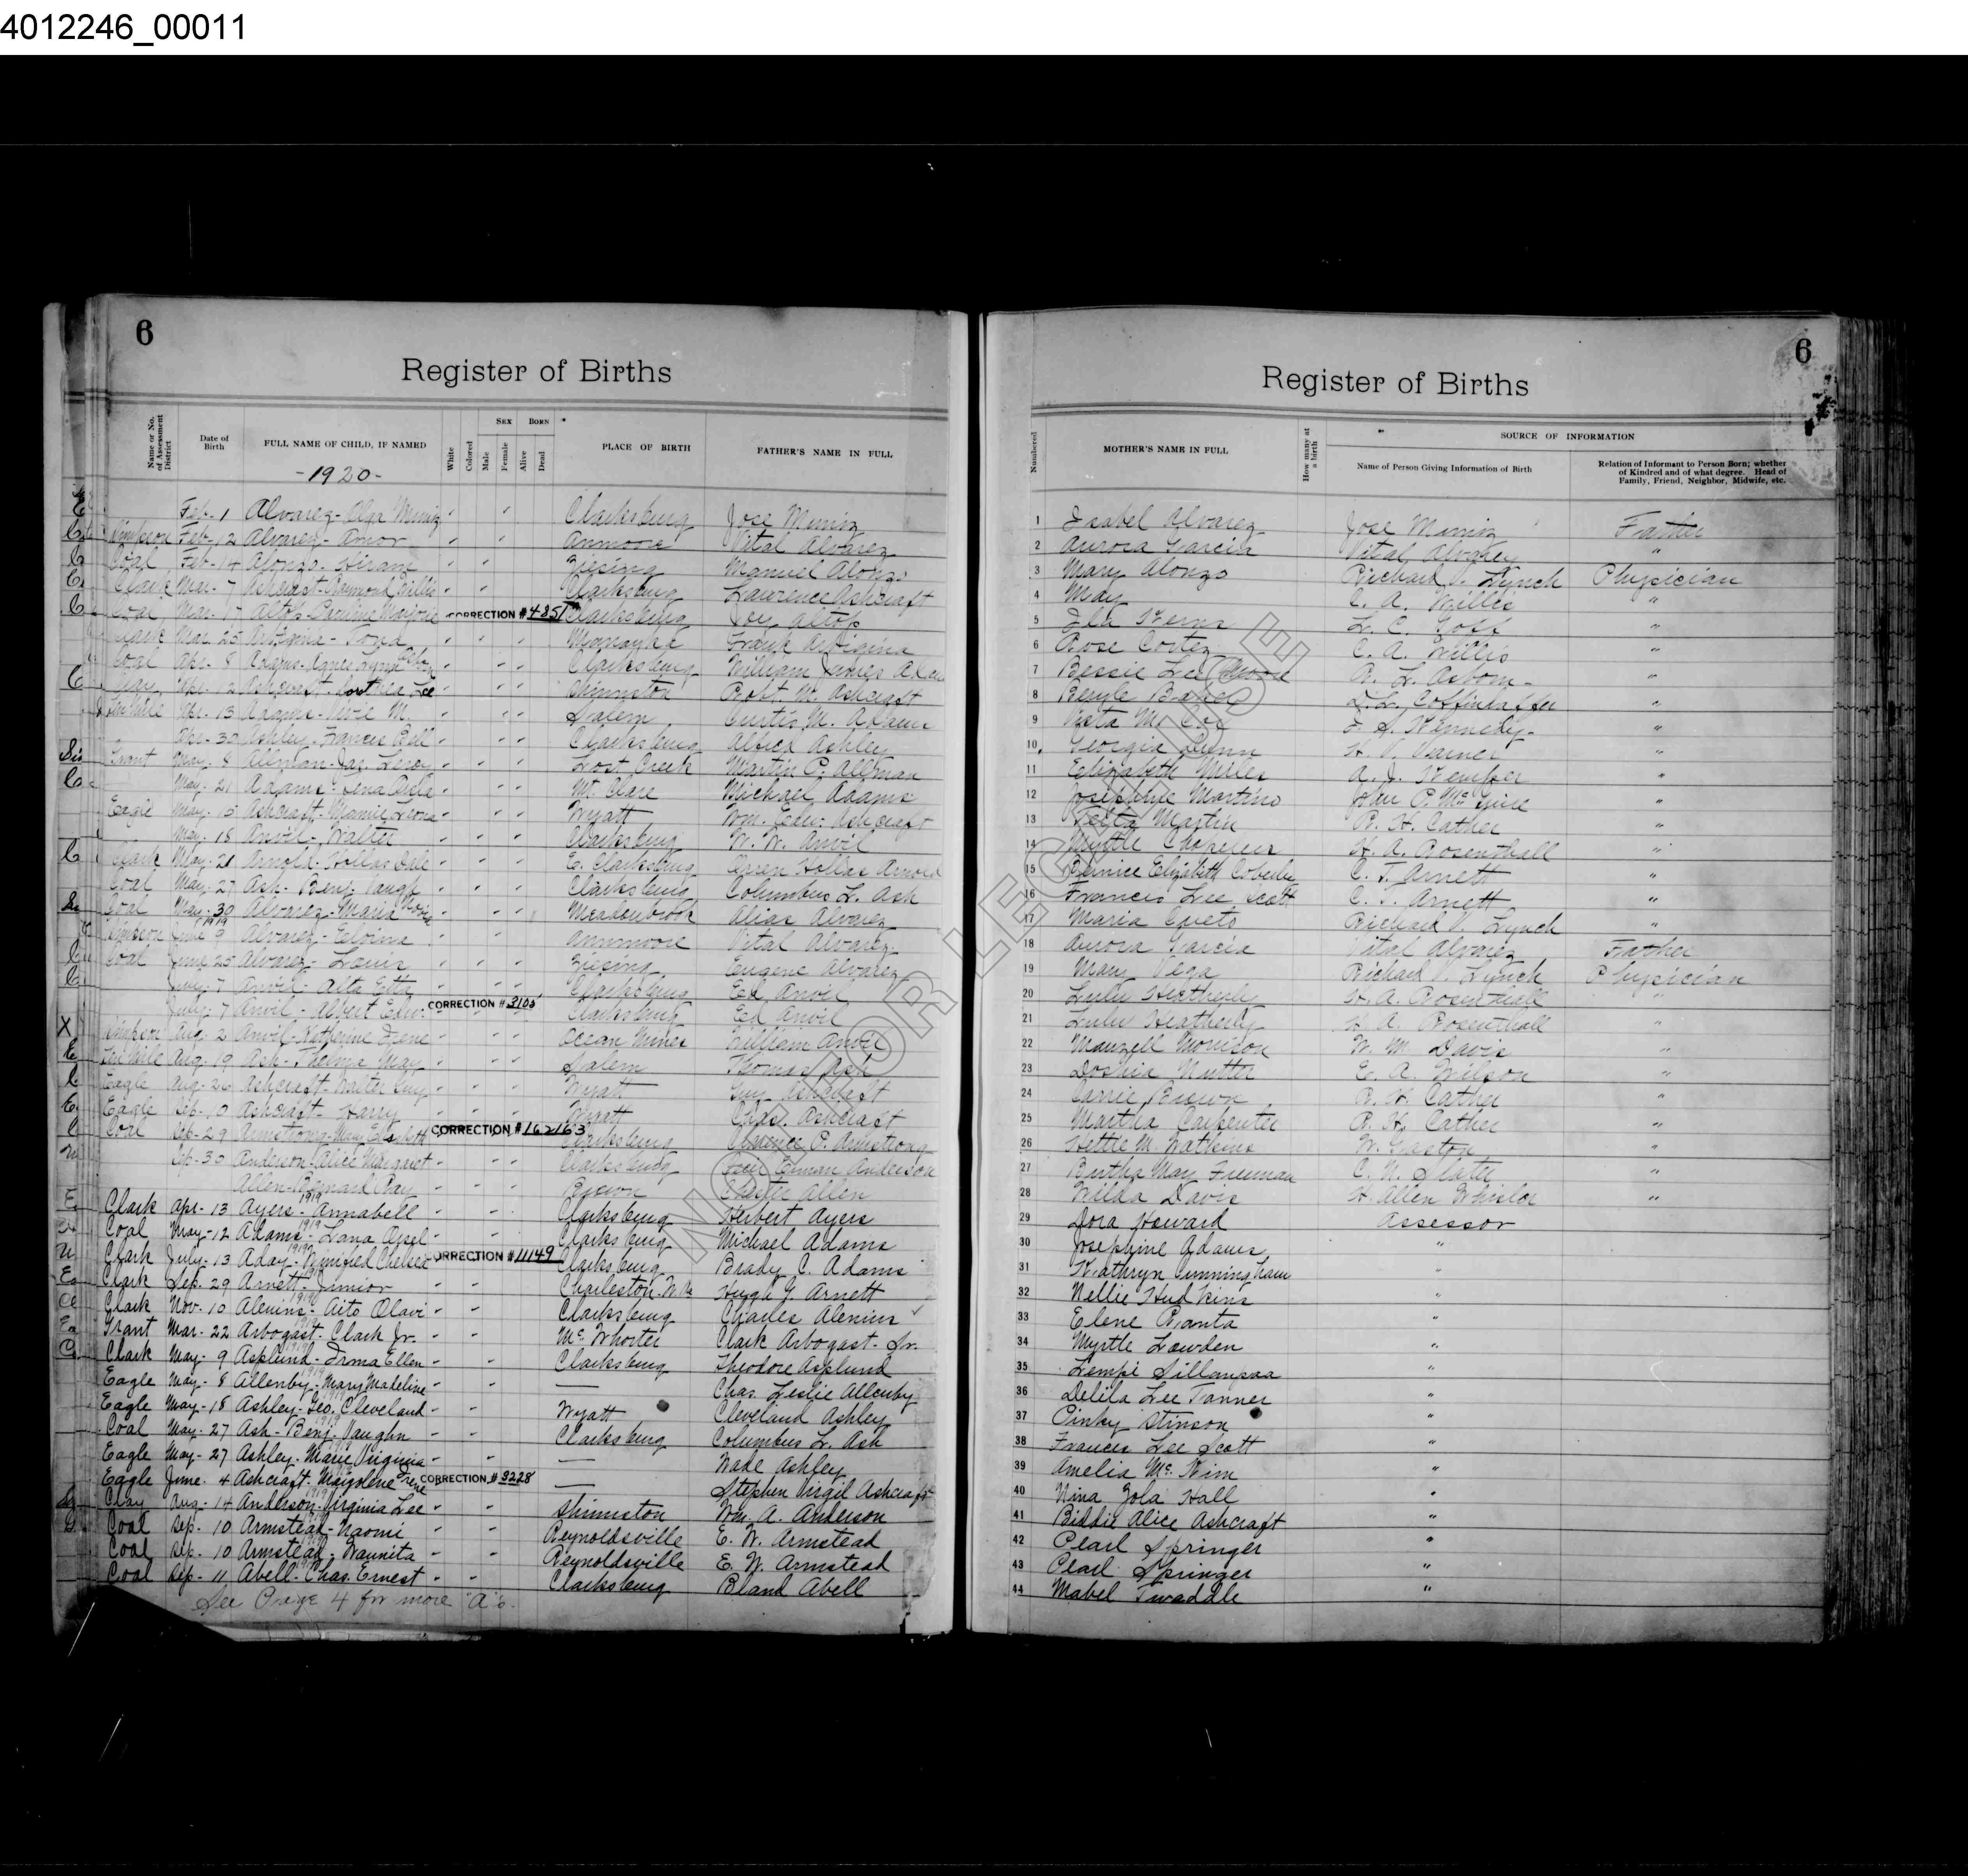 4012246_00011
6
Register of Births
Name or No. of Assessment District
Date of Birth
FULL NAME OF CHILD, IF NAMED
-1920-
White
Colored
SEX
Male
Female
BORN
Alive
Dead
PLACE OF BIRTH
FATHER'S NAME IN FULL
Feb- 1 Alvarez- Olga Muniz Clarksburg Jose Muniz
Simpson Feb- 12 Alvarez- Anmoore Vital Alvarez
Coal Feb- 14 Alonzo- Hiram Ziesing Manuel Alonzo
Clark Mar- 7 Ashcraft- Raymond Willis Clarksburg Lawrence Ashcraft
Coal Mar- 17 Altop- Marjorie CORRECTION # 4851 Clarksburg Altop
Clark Mar. 25 Clarksburg
Coal Apr- 8 Adams- Agnes Clarksburg William James
Clay Apr- 12 Ashcraft- Lee Shinnston Robt. M. Ashcraft
Ten Mile Apr- 13 Adams- M. Salem Curtis M. Adams
Apr- 30 Ashley- Frances Clarksburg Alfred Ashley
Grant May- 8 Allman- Jas. Leroy Lost Creek Martin P. Allman
May- 21 Adams- Lena Mt. Clare Michael Adams
Eagle May- 15 Ashcraft- Leona Wyatt Wm. Ashcraft
May- 18 Anvil- Walter Clarksburg W. W. Anvil
Clark May- 21 Arnold- Hollas Dale E. Clarksburg Hollas Arnold
Coal May- 27 Ash- Benj. Vaugh Clarksburg Columbus L. Ash
Coal May- 30 Alvarez- Maria Meadowbrook Alias Alvarez
Simpson June 9 1919 Alvarez- Anmoore Vital Alvarez
Coal June 25 Alvarez- Louis Ziesing Eugene Alvarez
July- 7 Anvil- Alta Etta Clarksburg Ed Anvil
July- 7 Anvil- Albert Edw. CORRECTION # 3105 Clarksburg Ed Anvil
X Simpson Aug. 2 Anvil- Katherine Irene Ocean Mines William Anvil
Ten Mile Aug- 19 Ash- Thelma May Salem Thomas Ash
Eagle Aug- 26 Ashcraft- Walter Guy Wyatt Guy Ashcraft
Eagle Sep- 10 Ashcraft- Harry Wyatt Chas. Ashcraft
Coal Sep- 29 Armstrong- Mary Elizabeth CORRECTION # 162163 Clarksburg Clarence P. Armstrong
Sep- 30 Anderson- Alice Margaret Clarksburg Anderson
Allen- Bernard Ray Brown Chester Allen
Clark Apr- 13 1919 Ayers- Annabell Clarksburg Herbert Ayers
Coal May- 12 1919 Adams- Lana Clarksburg Michael Adams
Clark July- 13 1919 Aday- Winifred Chelsea CORRECTION # 11149 Clarksburg Brady C. Adams
Clark Sep- 29 Arnett- Junior Charleston- W. Va Hugh G. Arnett
Clark Nov- 10 Alenius- Aito Olavi Clarksburg Charles Alenius
Grant Mar- 22 Arbogast- Clark Jr. McWhorter Clark Arbogast- Sr.
Clark May- 9 Asplund- Irma Ellen Clarksburg Theodore Asplund
Eagle May- 8 Allenby- Mary Madeline — Chas. Leslie Allenby
Eagle May- 18 Ashley- Geo. Cleveland Wyatt Cleveland Ashley
Coal May- 27 Ash- Benj- Vaughn Clarksburg Columbus L. Ash
Eagle May- 27 Ashley- Marie Virginia — Wade Ashley
Eagle June- 4 Ashcraft- Irene CORRECTION # 3228 — Stephen Virgil Ashcraft
Clay Aug- 14 Anderson- Virginia Lee Shinnston Wm. A. Anderson
Coal Sep- 10 Armstead- Naomi Reynoldsville E. W. Armstead
Coal Sep- 10 Armstead- Waunita Reynoldsville E. W. Armstead
Coal Sep- 11 Abell- Chas. Ernest Clarksburg Bland Abell
See Page 4 for more "A"s.
6
Register of Births
Numbered
MOTHER'S NAME IN FULL
How many at a birth
SOURCE OF INFORMATION
Name of Person Giving Information of Birth
Relation of Informant to Person Born; whether of Kindred and of what degree. Head of Family, Friend, Neighbor, Midwife, etc.
1 Isabel Alvarez Jose Muniz Father
2 Aurora Garcia Vital Alvarez "
3 Mary Alonzo Richard V. Lynch Physician
4 May C. A. Willis "
5 Ila Kerns L. C. Goff "
6 Rose Cortez C. A. Willis "
7 Bessie Lee R. L. Osborn- "
8 Beryle Baker L. L. Coffindaffer "
9 McCoy Kennedy- "
10 Georgia Gunn H. V. Varner "
11 Elizabeth Miles A. J. Kemper "
12 Josephine Martino John P. McGuire "
13 Martin R. H. Cather "
14 Myrtle H. A. Rosenthall "
15 Bernice Elizabeth Coberly C. T. Arnett "
16 Frances Lee Scott C. T. Arnett "
17 Maria Cueto Richard V. Lynch "
18 Aurora Garcia Vital Alvarez Father
19 Mary Vega Richard V. Lynch Physician
20 Lulu Heatherly H. A. Rosenthall "
21 Lulu Heatherly H. A. Rosenthall "
22 Manzell Morrison W. M. Davis "
23 Doshia Nutter E. A. Wilson "
24 Carrie Brown R. H. Cather "
25 Martha Carpenter R. H. Cather "
26 Hettie M. Watkins W. Gaston "
27 Bertha May Freeman C. N. Slater "
28 Wilda Davis H. Allen Whisler "
29 Dora Howard Assessor
30 Josephine Adams "
31 Kathryn Cunningham "
32 Nellie Hudkins "
33 Elene Ranta "
34 Myrtle Lowden "
35 Lempi Sillanpaa "
36 Delila Lee Tanner "
37 Pinky Stinson "
38 Frances Lee Scott "
39 Amelia McKim "
40 Nina Zola Hall "
41 Biddie Alice Ashcraft "
42 Pearl Springer "
43 Pearl Springer "
44 Mabel Twaddle "
NOT FOR LEGAL USE